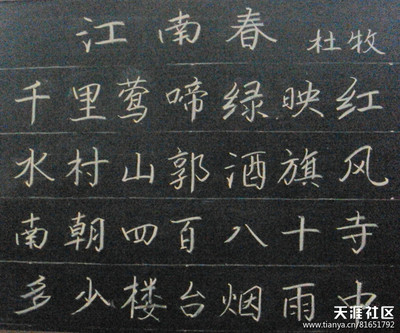 江南春 杜牧
千里莺啼绿映红
水村山郭酒旗风
南朝四百八十寺
多少楼台烟雨中
天涯社区
www.tianya.cn/81651792